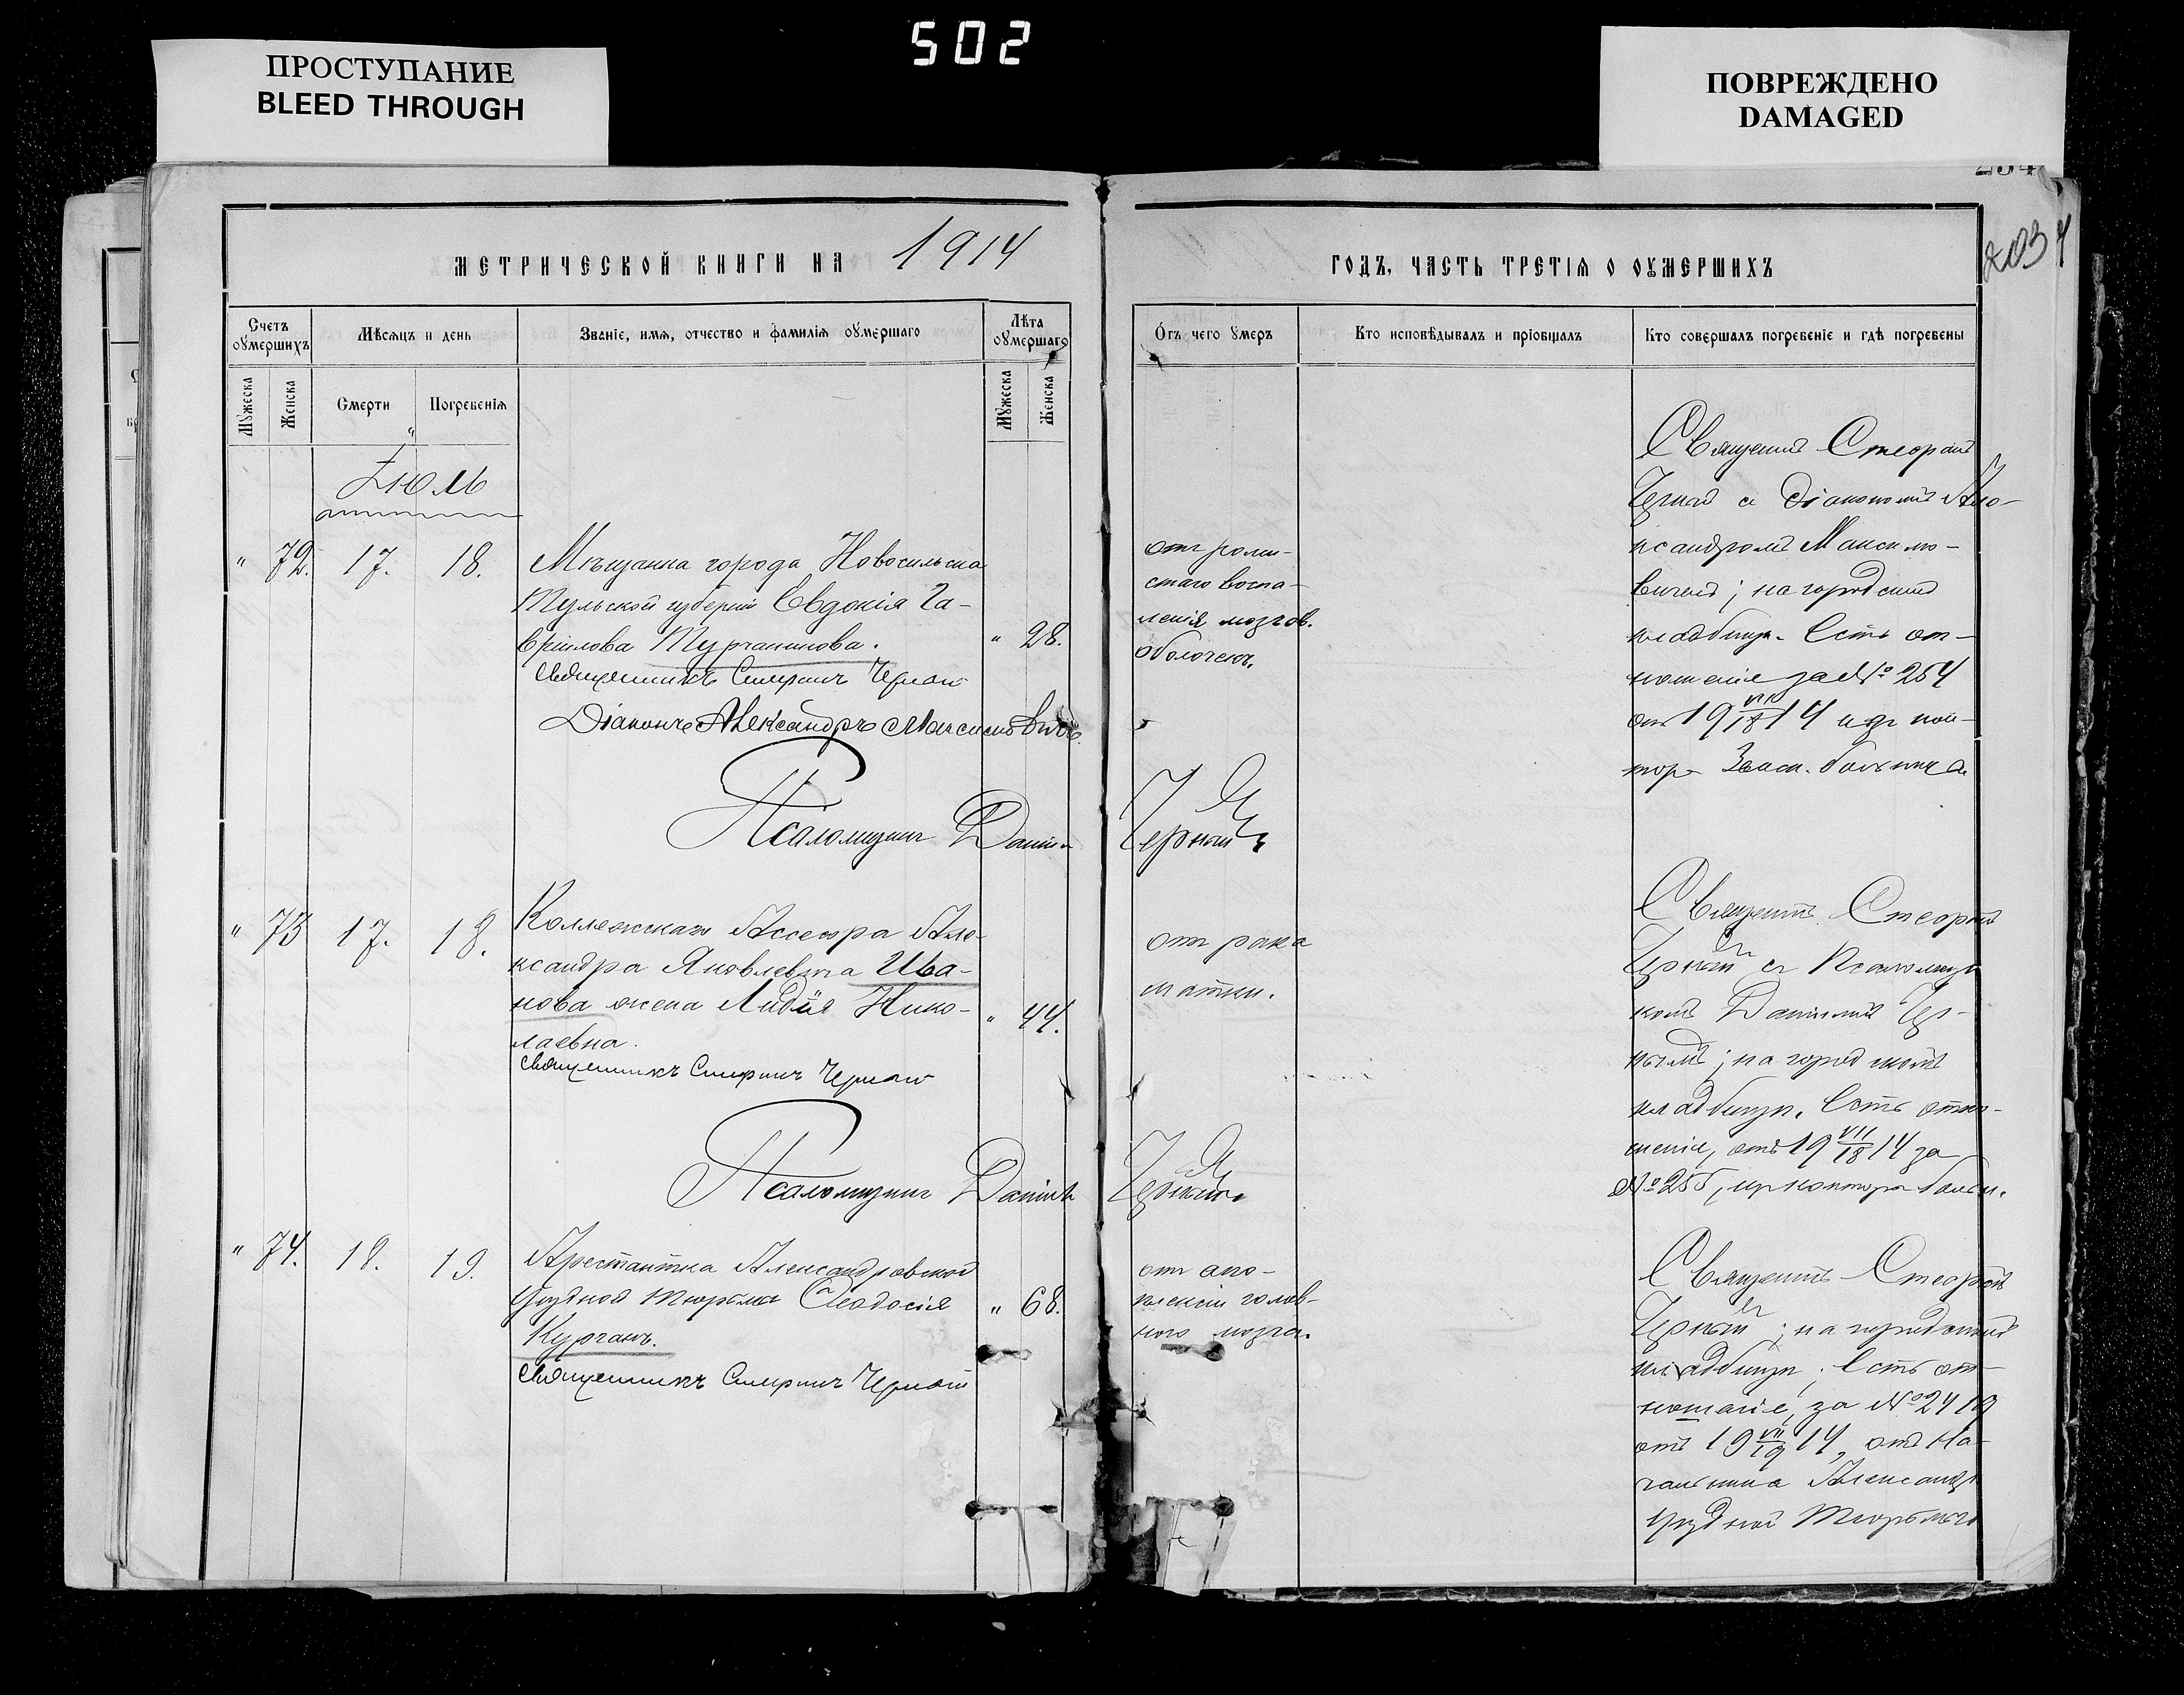 502
ПРОСТУПАНИЕ
BLEED THROUGH
ПОВРЕЖДЕНО
DAMAGED
203
МЕТРИЧЕСКОЙ КНИГИ НА 1914
ГОДЪ, ЧАСТЬ ТРЕТІЯ О ОУМЕРШИХЪ
Счетъ оумершихъ
Мѣсяцъ и день
Званіе, имя, отчество и фамилія оумершаго
Лѣта оумершаго
Отъ чего умеръ
Кто исповѣдывалъ и пріобщалъ
Кто совершалъ погребеніе и гдѣ погребены
Мужеска
Женска
Смерти
Погребенія
Мужеска
Женска
Іюль
" 72. 17. 18.
Мѣщанка города Новосильска
Тульской губерніи Евдокія Га-
вріилова Турчанинова.
" 28.
Священникъ Стефанъ Черный
Діаконъ Александръ Максимовичъ
Псаломщикъ Даніилъ Черный
отъ гной-
наго воспа-
ленія мозгов.
оболочекъ.
Священникъ Стефанъ
Черный съ діакономъ Але-
ксандромъ Максимо-
вичемъ; на городскомъ
кладбищѣ. Есть от-
ношеніе за № 254
отъ 19 VII/18 14 изъ кон-
торы больницы
" 73 17. 18.
Коллежскаго Ассесора Але-
ксандра Яковлевича Ива-
нова жена Лидія Нико-
лаевна.
" 44.
Священникъ Стефанъ Черный
Псаломщикъ Даніилъ Черный
отъ рака
матки.
Священникъ Стефанъ
Черный съ Псаломщи-
комъ Даніиломъ Чер-
нымъ; на городскомъ
кладбищѣ. Есть отно-
шеніе, отъ 19 VII/18 14 за
№ 255, изъ конторы больн.
" 74. 18. 19.
Арестантка Александровской
уѣздной тюрьмы Ѳеодосія
Курганъ.
" 68.
Священникъ Стефанъ Черный
отъ апо-
плексіи голов-
ного мозга.
Священникъ Стефанъ
Черный; на городскомъ
кладбищѣ; Есть от-
ношеніе, за № 2419
отъ 19 VII/19 14, отъ На-
чальника Александр.
уѣздной Тюрьмы